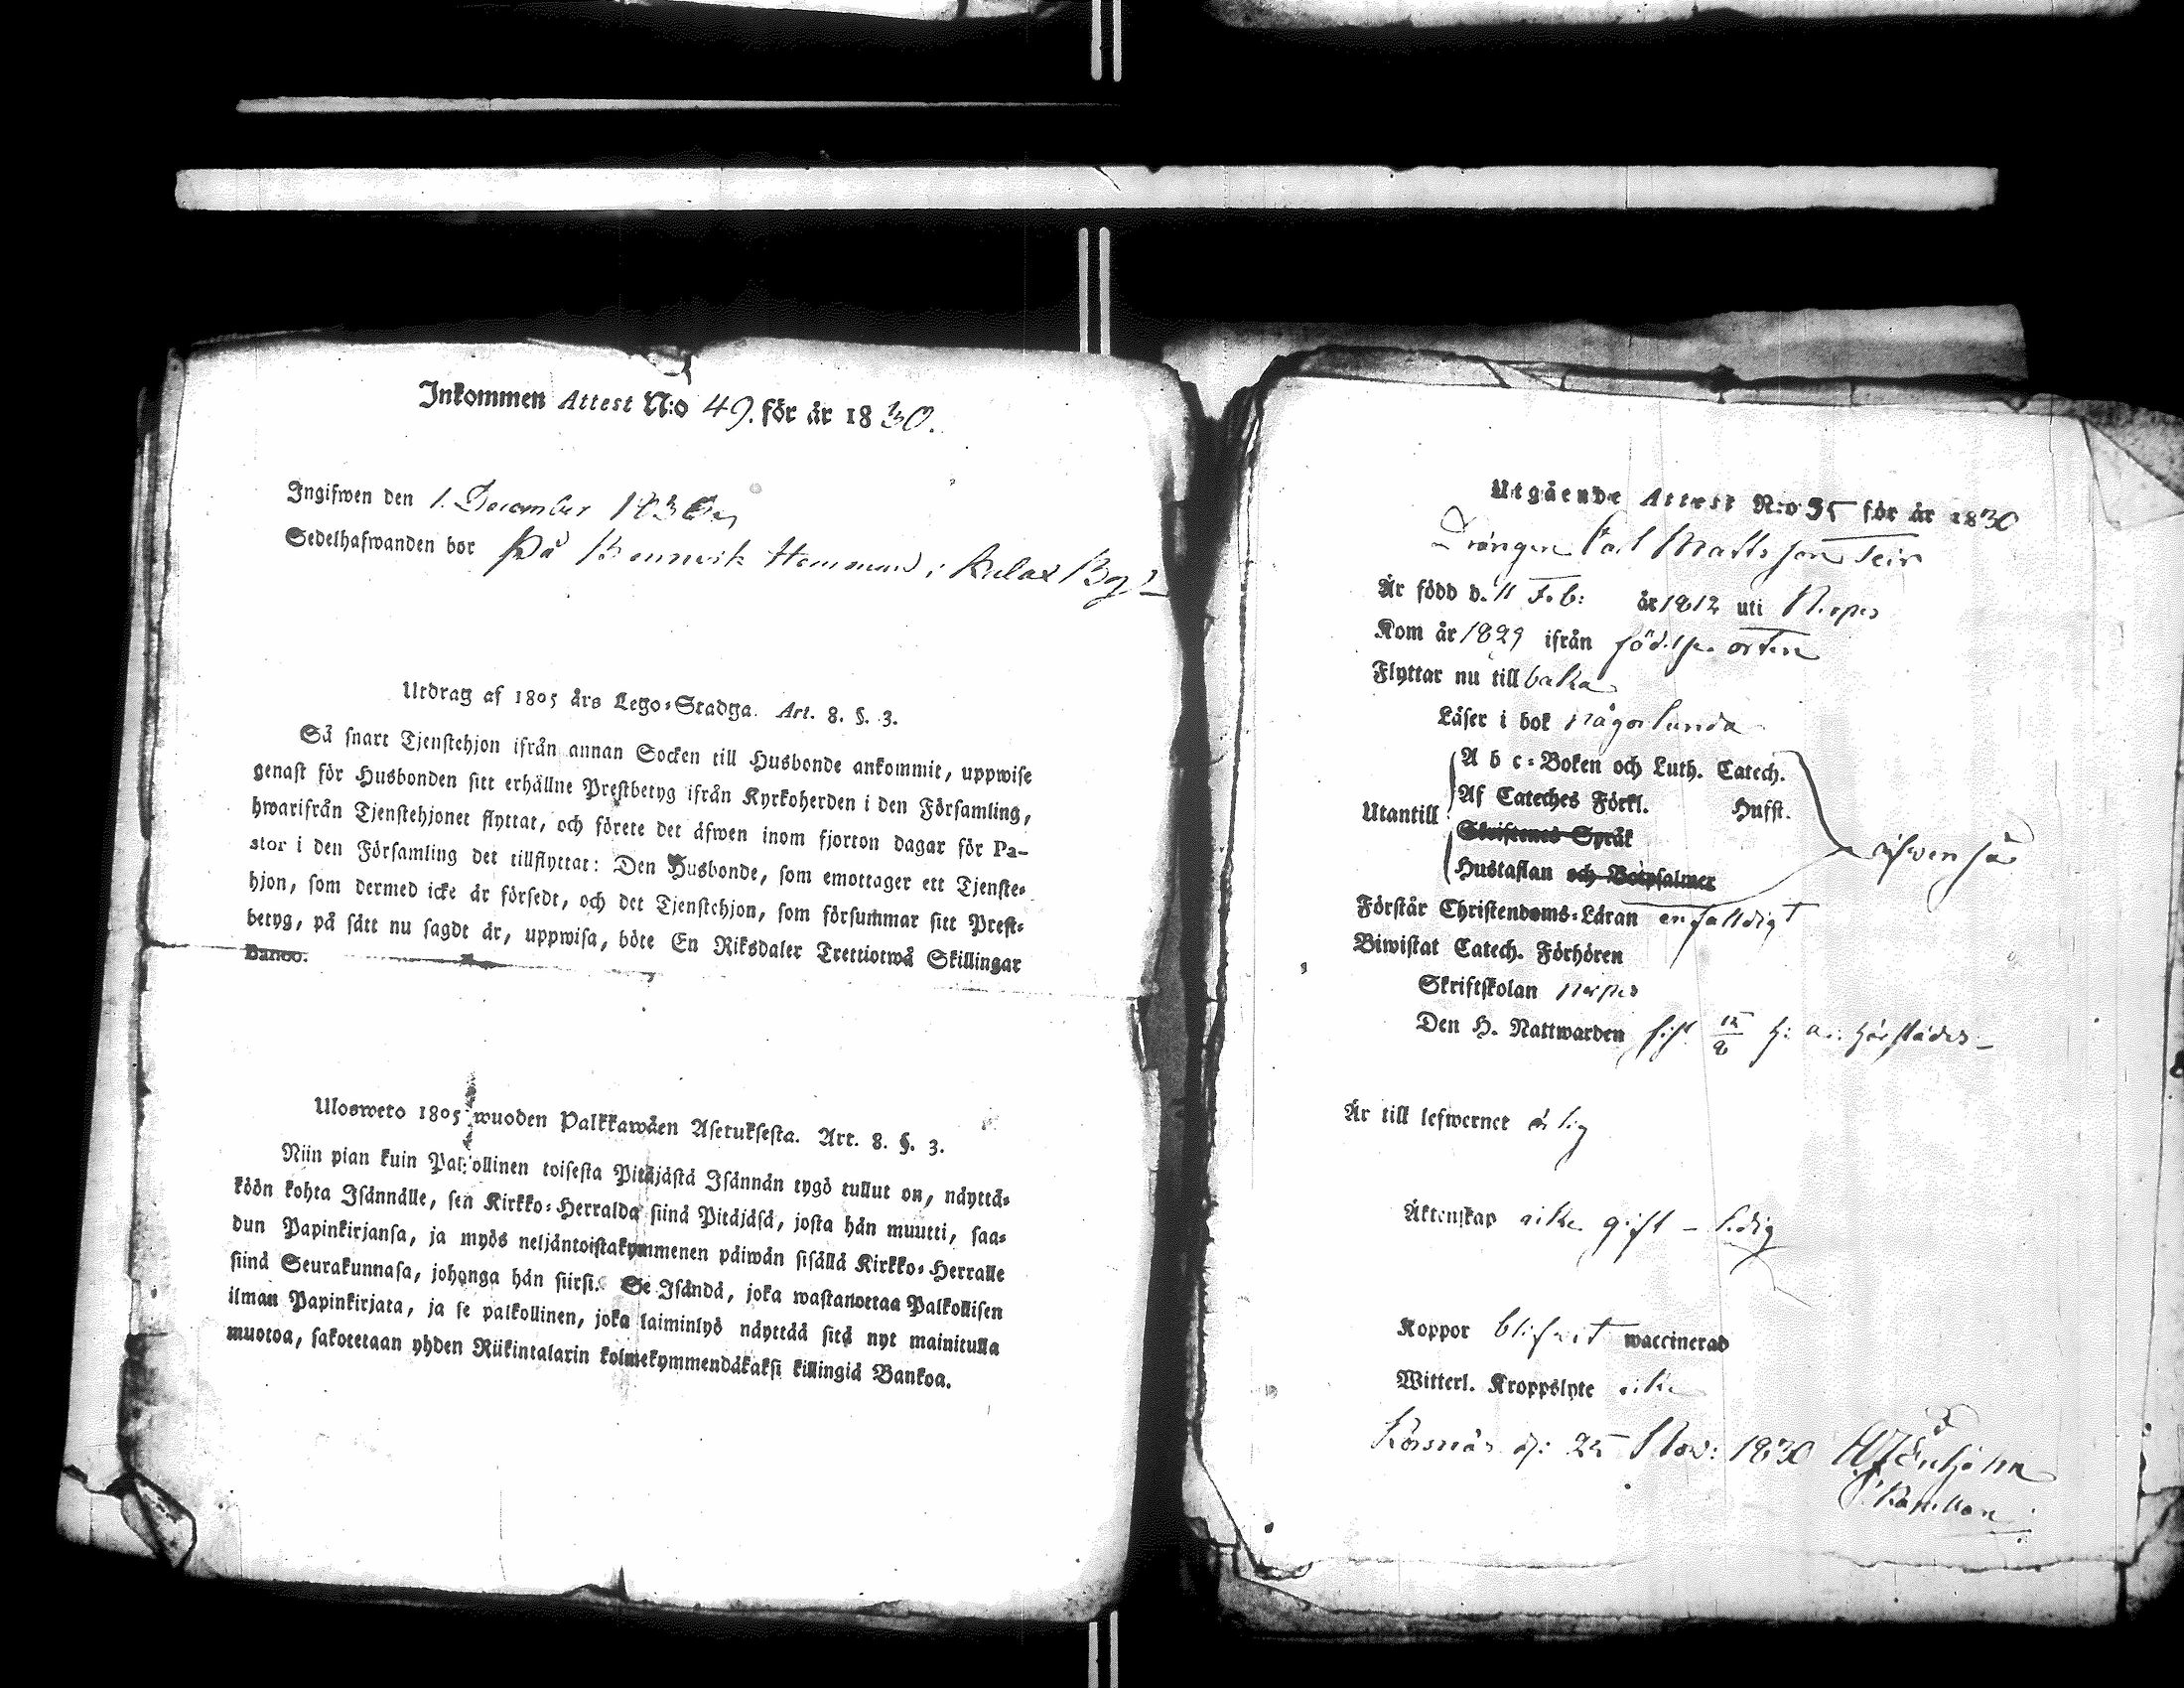 Inkommen Attest N:o 49. för år 1830.
Ingifwen den 1. December 1830
Sedelhafwanden bor På Bennvik Hemman i Kalax By
Utdrag af 1805 års Lego-Stadga. Art. 8. §. 3.
Så snart Tjenstehjon ifrån annan Socken till Husbonde ankommit, uppwise
genast för Husbonden sitt erhållne Prestbetyg ifrån Kyrkoherden i den Församling,
hwarifrån Tjenstehjonet flyttat, och förete det äfwen inom fjorton dagar för Pa-
stor i den Församling det tillflyttat: Den Husbonde, som emottager ett Tjenste-
hjon, som dermed icke är försedt, och det Tjenstehjon, som försummar sitt Prest-
betyg, på sätt nu sagdt är, uppwisa, böte En Riksdaler Trettiotwå Skillingar
Banco.
Ulosweto 1805 wuoden Palkkawäen Asetuksesta. Art. 8. §. 3.
Niin pian kuin Palkollinen toisesta Pitäjästä Isännän tygö tullut on, näyttä-
köön kohta Isännälle, sen Kirkko-Herralda siinä Pitäjäsä, josta hän muutti, saa-
dun Papinkirjansa, ja myös neljäntoistakymmenen päiwän sisällä Kirkko-Herralle
siinä Seurakunnasa, johonga hän siirsi. Se Isändä, joka wastanottaa Palkollisen
ilman Papinkirjata, ja se palkollinen, joka laiminlyö näyttää sitä nyt mainitulla
muotoa, sakotetaan yhden Riikintalarin kolmekymmendäkaksi killingiä Bankoa.
Utgående Attest N:o 35 för år 1830
Drängen Carl Mattsson Teir
Är född d. 11 Feb: år 1812 uti Nerpes
Kom år 1829 ifrån födelse orten
Flyttar nu till baka
Läser i bok någorlunda
A b c-Boken och Luth. Catech.
Af Cateches Förkl. Hufst.
Utantill
Skriftenes Språk
Hustaflan och Botpsalmer
äfwen så
Förstår Christendoms-Läran enfaldigt
Biwistat Catech. Förhören
Skriftskolan Nerpes
Den H. Nattwarden sist 15/8 h: a: härstädes
Är till lefwernet ärlig
Äktenskap icke gift - ledig
Koppor blifwit waccinerad
Witterl. Kroppslyte icke
Korsnäs d: 25 Nov: 1830